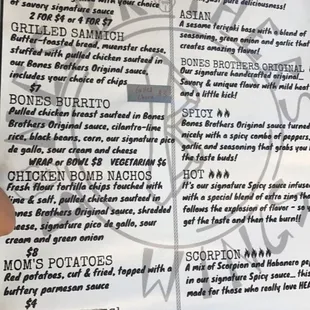 of savory signature sauce
2 FOR $4 or 4 FOR $7
GRILLED SAMMICH
Butter-toasted bread, muenster cheese,
stuffed with pulled chicken sauteed in
our Bones Brothers Original sauce,
includes your choice of chips
$7
BONES BURRITO
Pulled chicken breast sauteed in Bones
Brothers Original sauce, cilantro-lime
rice, black beans, corn, our signature pico
de gallo, sour cream and cheese
WRAP or BOWL $8 VEGETARIAN $6
CHICKEN BOMB NACHOS
Fresh flour tortilla chips touched with
lime & salt, pulled chicken sauteed in
Bones Brothers Original sauce, shredded
cheese, signature pico de gallo, sour
cream and green onion
$8
MOM'S POTATOES
Red potatoes, cut & fried, topped with a
buttery parmesan sauce
$4
pure deliciousness!
ASIAN
A sesame teriyaki base with a blend of
seasoning, green onion, and garlic that
creates amazing flavor!
BONES BROTHERS ORIGINAL
Our signature handcrafted original...
Savory & unique flavor with mild heat
and a little kick!
SPICY
Bones Brothers Original sauce turned
nicely with a spicy combo of peppers,
garlic and seasoning that grabs you
the taste buds!
HOT
It's our signature Spicy sauce infused
with a special blend of extra zing that
follows the explosion of flavor - so
get the taste and then the burn!!
SCORPION
A mix of Scorpion and Habanero pe
in our signature Spicy sauce... this
made for those who really love HEA
WING